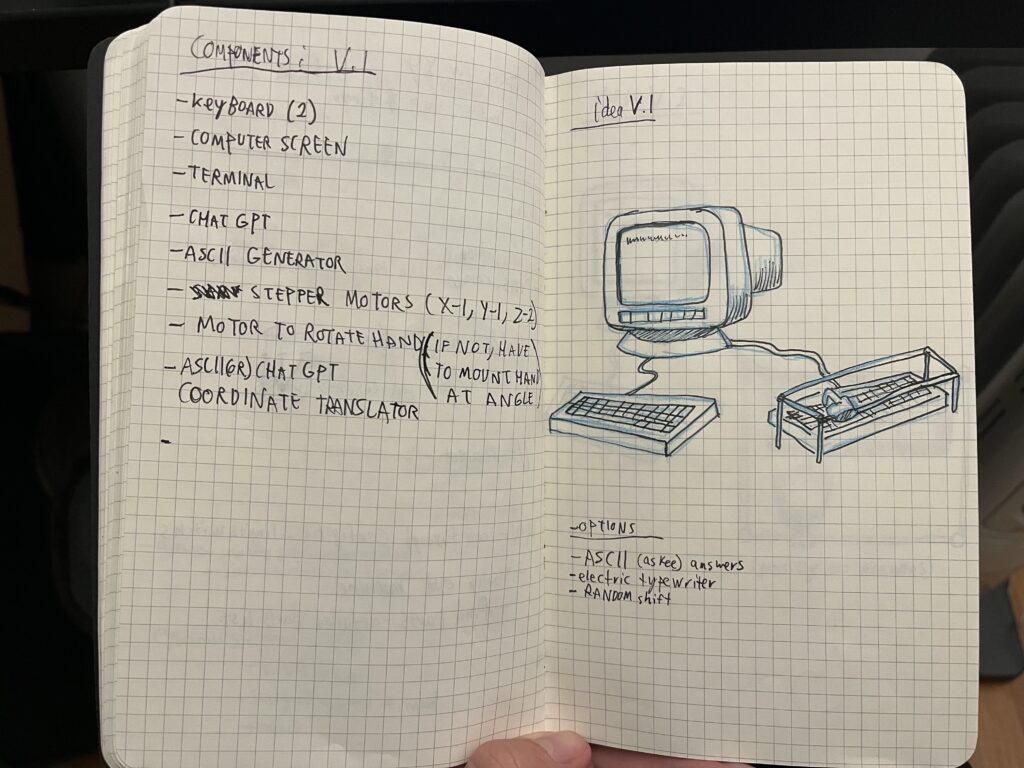 COMPONENTS: V.1
- KEYBOARD (2)
- COMPUTER SCREEN
- TERMINAL
- CHAT GPT
- ASCII GENERATOR
- STEPPER MOTORS (X-1, Y-1, Z-2)
- MOTOR TO ROTATE HAND (IF NOT, HAVE
TO MOUNT HAND
AT ANGLE)
- ASCII (OR) CHAT GPT
COORDINATE TRANSLATOR
-
idea V.1
- OPTIONS
- ASCII (askee) answers
- electric typewriter
- RANDOM shift